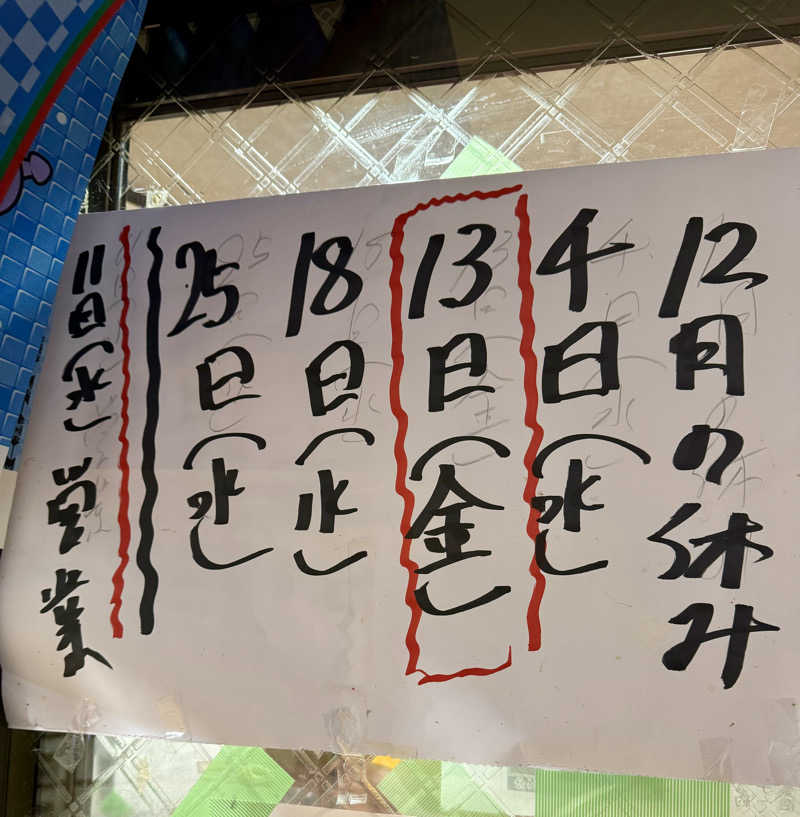 12月の休み
4日(水)
13日(金)
18日(水)
25日(水)
11日(水)営業